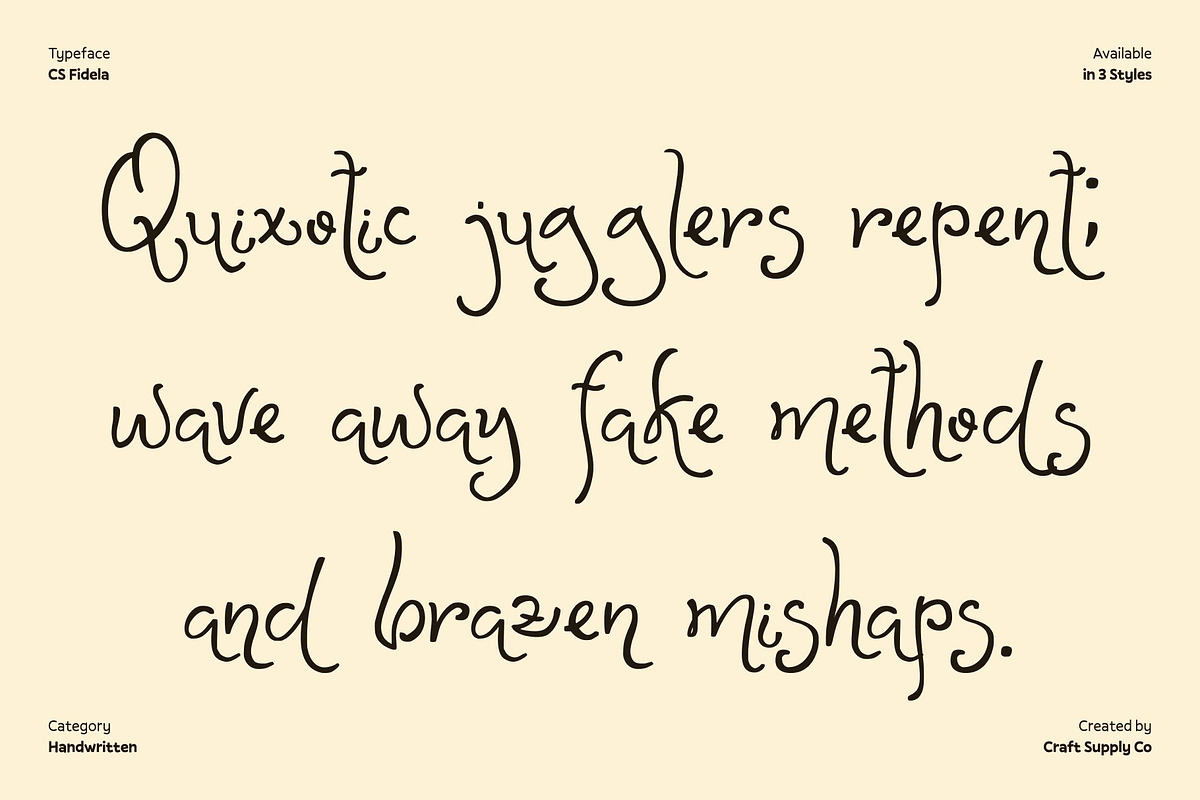 Typeface
CS Fidela
Available
in 3 Styles
Quixotic jugglers repent;
wave away fake methods
and brazen mishaps.
Category
Handwritten
Created by
Craft Supply Co